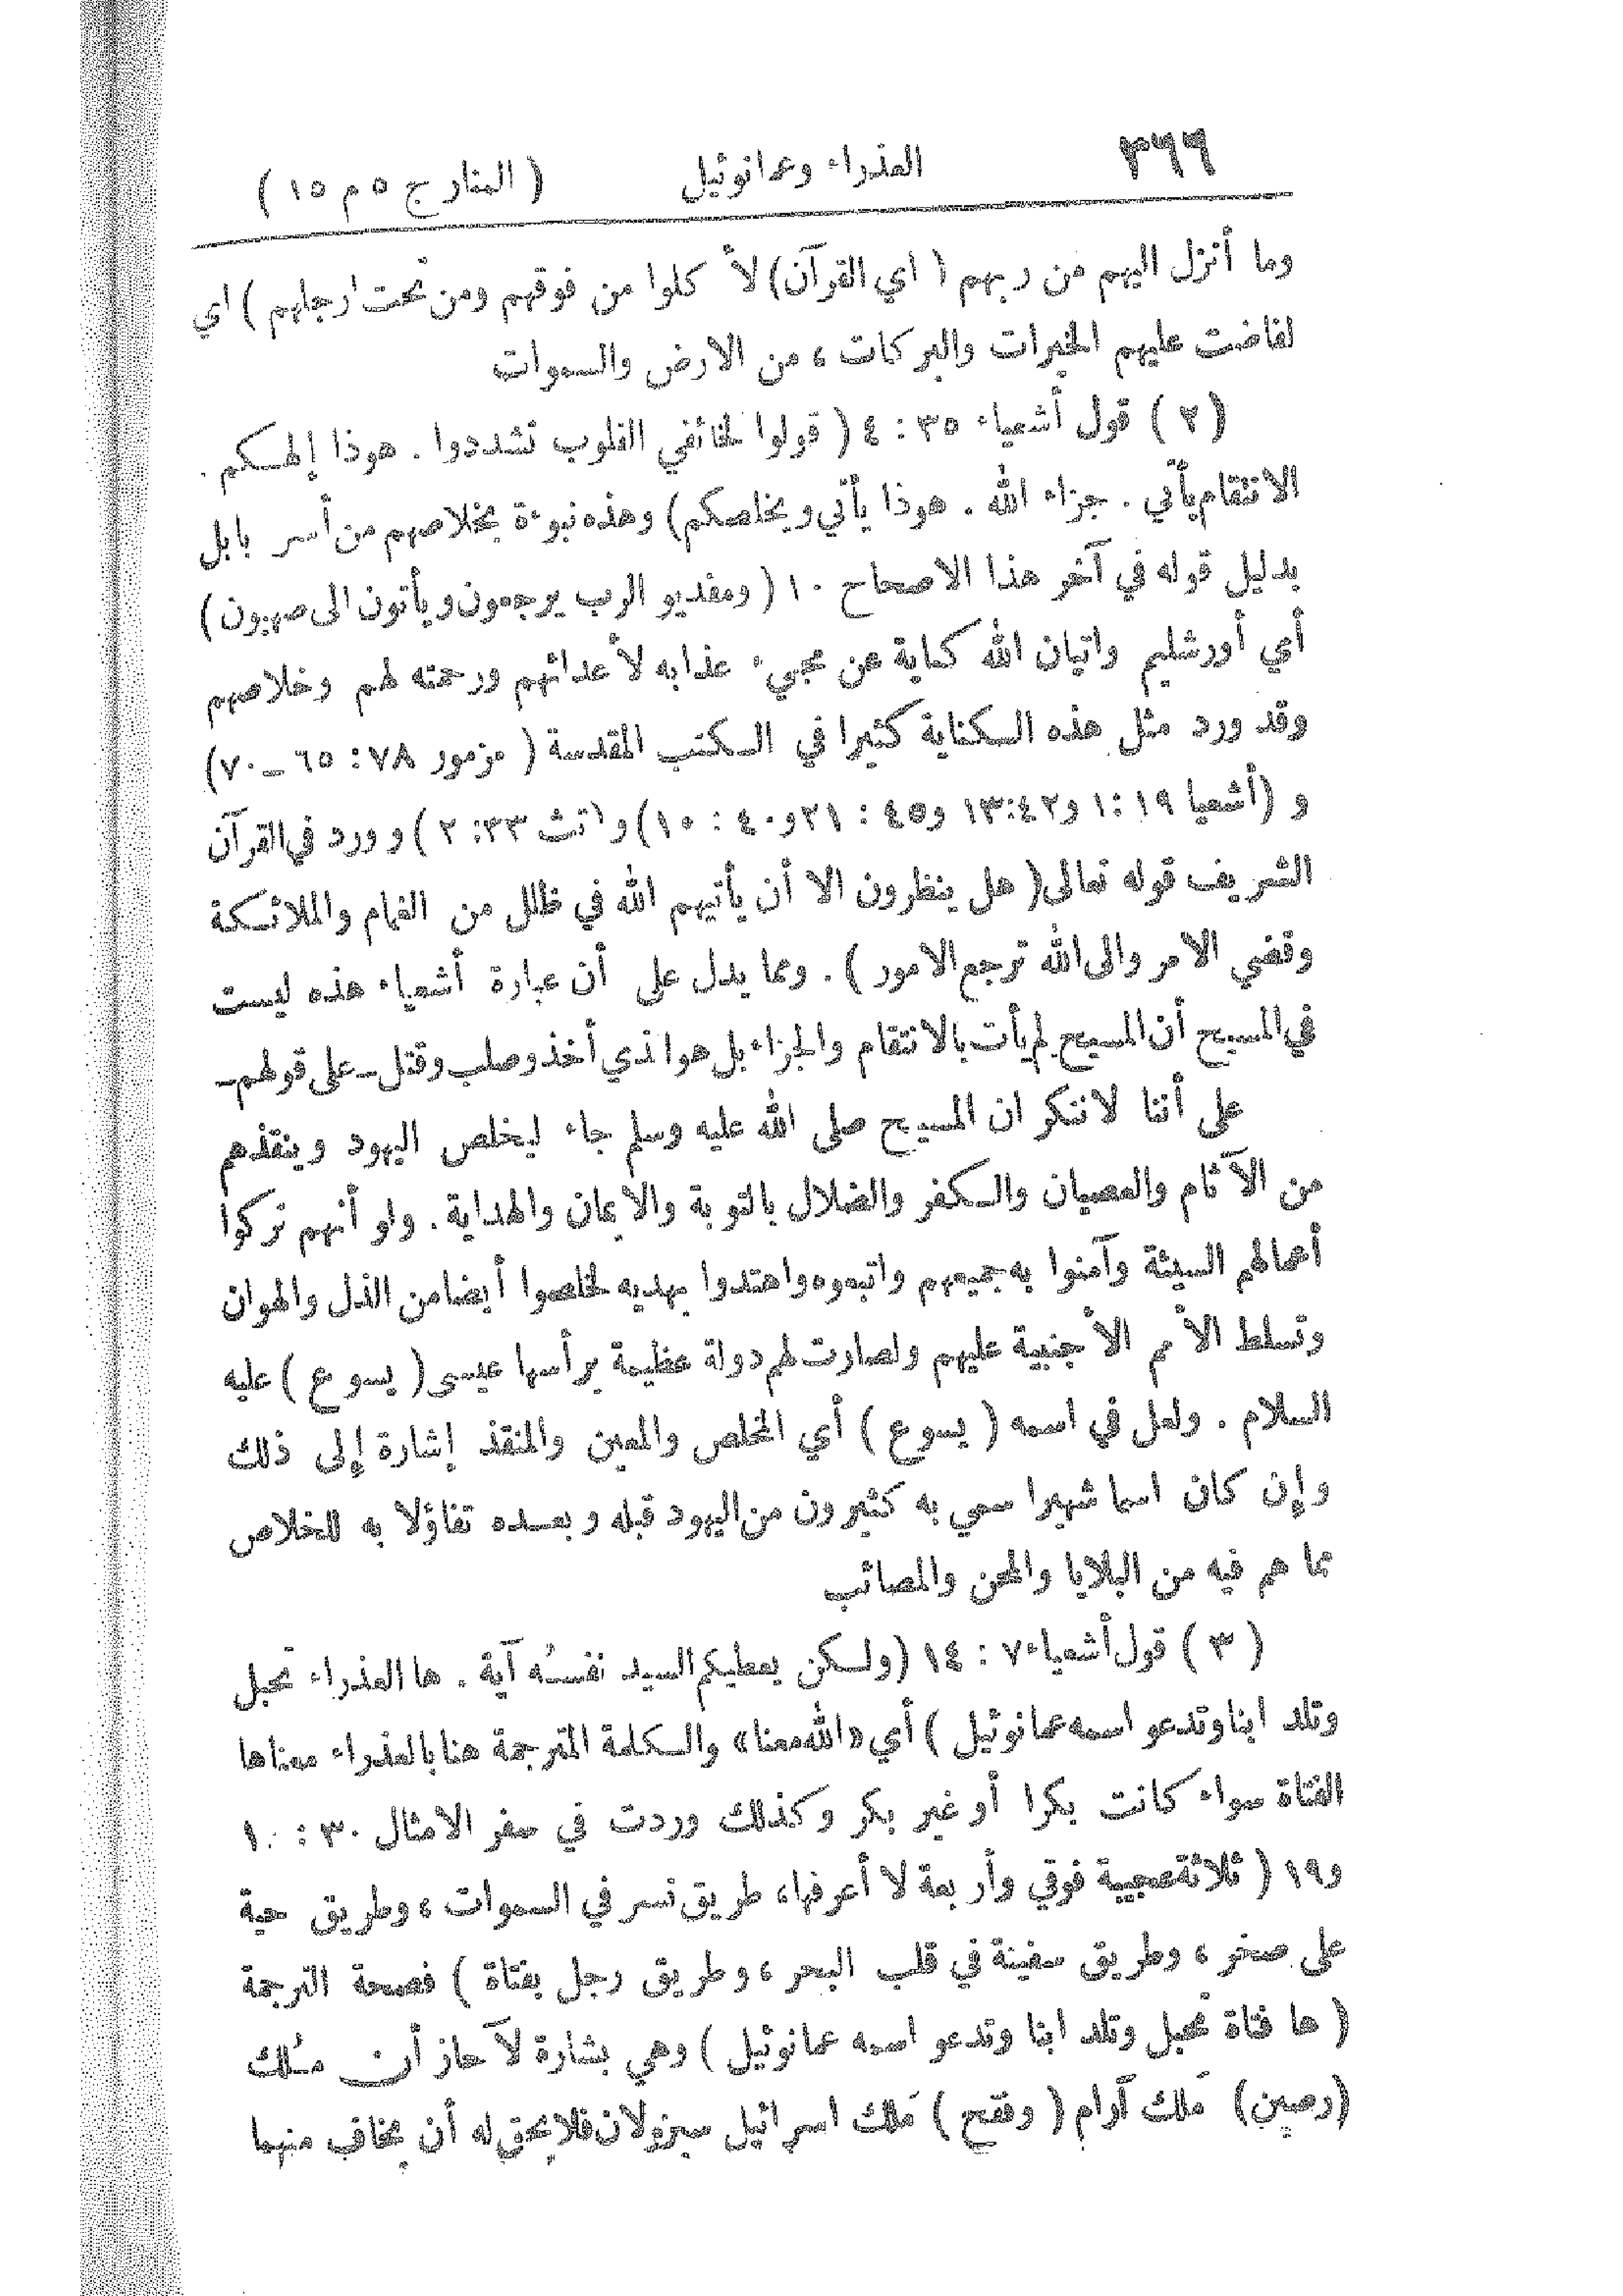 ٣٦٦ العذراء وعمانوئيل ( المنار ج ٥ م ١٥ )
وما أنزل اليهم من ربهم ( اي القرآن) لأ كلوا من فوقهم ومن تحت ارجلهم ) اي
لفاضت عليهم الخيرات والبركات ، من الارض والسموات
( ٢ ) قول أشعياء ٣٥ : ٤ ( قولوا لخائفي القلوب تشددوا . هوذا إلهكم .
الانتقام يأتي . جزاء الله . هوذا يأتي ويخلصكم) وهذه نبوءة بخلاصهم من أسر بابل
بدليل قوله في آخر هذا الاصحاح ١٠ ( ومفديو الرب يرجعون ويأتون الى صهيون )
أي أورشليم واتيان الله كناية عن مجيء عذابه لأعدائهم ورحمته لهم وخلاصهم
وقد ورد مثل هذه الكناية كثيرا في الكتب المقدسة ( مزمور ٧٨ : ٦٥ ــ ٧٠)
و (أشعيا ١٩ : ١ و١٣:٤٢ و٤٥ : ٢١ و٤٠ : ١٠) و(تث ٣٣: ٢ ) وورد في القرآن
الشريف قوله تعالى ( هل ينظرون الا أن يأتيهم الله في ظلل من الغمام والملائكة
وقضي الامر والى الله ترجع الامور ) . ومما يدل على أن عبارة أشعياء هذه ليست
في المسيح أن المسيح لم يأت بالانتقام والجزاء بل هو الذي أخذ وصلب وقتل ـ على قولهم ـ
على أننا لا ننكر ان المسيح صلى الله عليه وسلم جاء ليخلص اليهود وينقذهم
من الآثام والعصيان والكفر والضلال بالتوبة والايمان والهداية . ولو أنهم تركوا
أعمالهم السيئة وآمنوا به جميعهم واتبعوه واهتدوا بهديه لخلصوا أيضا من الذل والهوان
وتسلط الأمم الأجنبية عليهم ولصارت لهم دولة عظيمة يرأسها عيسى ( يسوع ) عليه
السلام . ولعل في اسمه ( يسوع ) أي المخلص والمعين والمنقذ إشارة إلى ذلك
وإن كان اسما شهيرا سمي به كثيرون من اليهود قبله وبعده تفاؤلا به للخلاص
مما هم فيه من البلايا والمحن والمصائب
( ٣ ) قول أشعياء ٧ : ١٤ (ولكن يعطيكم السيد نفسُه آية . ها العذراء تحبل
وتلد ابنا وتدعو اسمه عمانوئيل ) أي «الله معنا» والكلمة المترجمة هنا بالعذراء معناها
الفتاة سواء كانت بكرا أو غير بكر وكذلك وردت في سفر الامثال ٣٠ : ١٠
و١٩ ( ثلاثة عجيبة فوقي وأربعة لا أعرفها، طريق نسر في السموات ، وطريق حية
على صخر ، وطريق سفينة في قلب البحر ، وطريق رجل بفتاة ) فصحة الترجمة
( ها فتاة تحبل وتلد ابنا وتدعو اسمه عمانوئيل ) وهي بشارة لآحاز أن مُلك
(رصين) مَلك آرام ( وفقح ) مَلك اسرائيل سيزولان فلا يحق له أن يخاف منهما